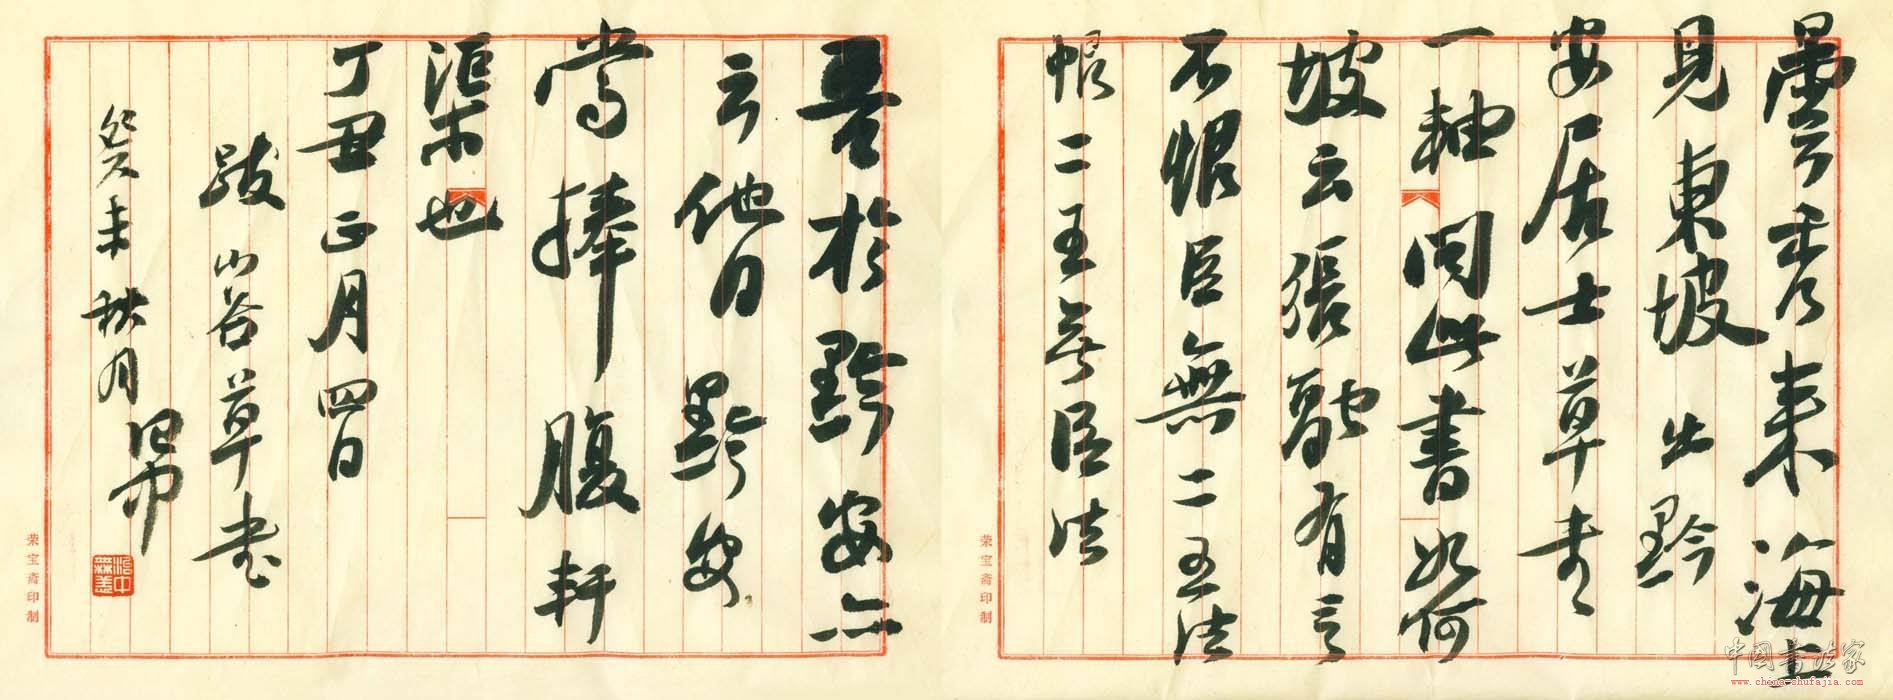 曇秀来海上
見東坡出黔
安居士草书
一軸问此書如何
坡云張融有言
不恨臣無二王法
恨二王无臣法
荣宝斋印制
吾於黔安亦
云他日黔安
當捧腹軒
渠也
丁丑正月四日
跋山谷草书
癸未秋月
荣宝斋印制
中国书法家
www.china-shufajia.com